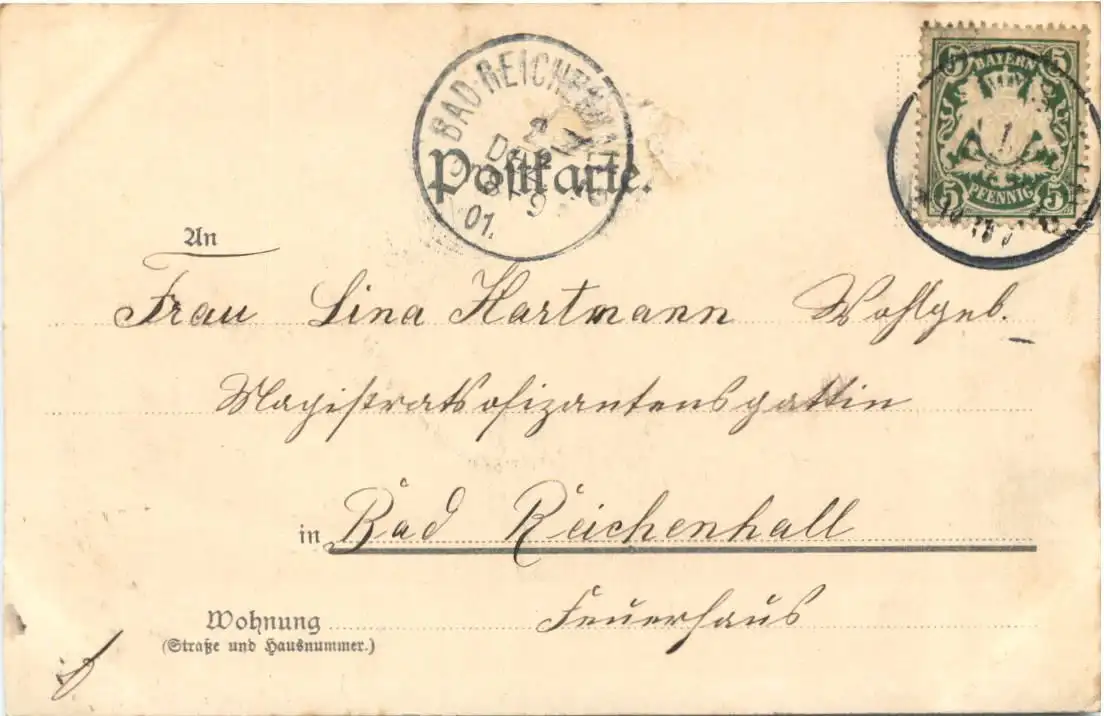 BAYERN
5 5
5 PFENNIG 5
BAD REICHENHALL
2
DEZ
8 9
01.
Postkarte.
An
Frau Lina Hartmann Wohlgeb.
Magistratsofizantensgattin
in Bad Reichenhall
Feuerhaus
Wohnung
(Straße und Hausnummer.)